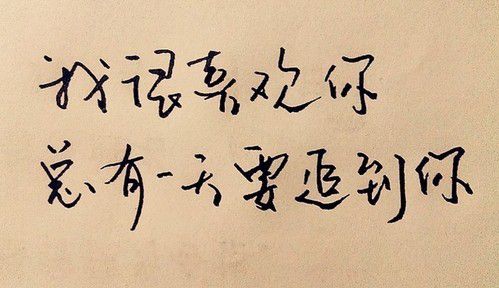 我很喜欢你
总有一天要追到你